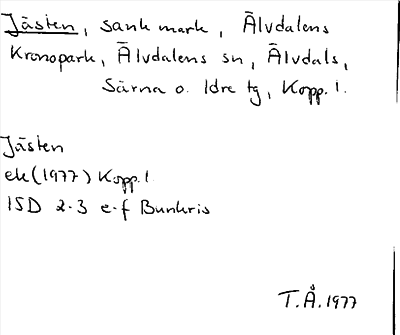 Jästen, sank mark, Älvdalens
Kronopark, Älvdalens sn, Älvdals,
Särna o. Idre tg, Kopp. l.
Jästen
ek (1977) Kopp. l
15D 2-3 e-f Bunkris
T.Å. 1977